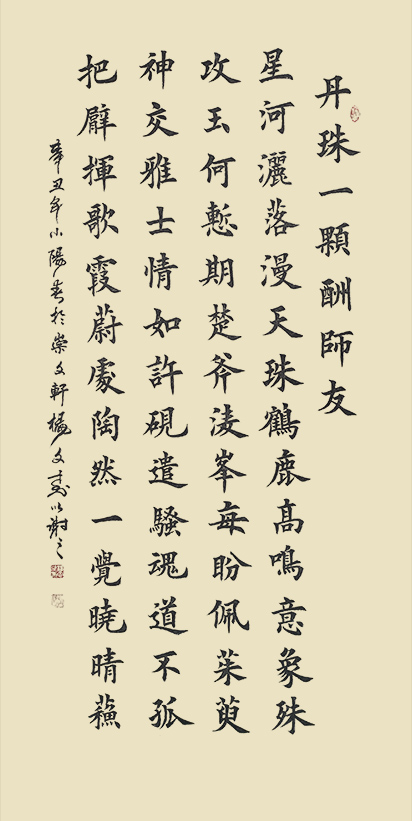 丹珠一顆酬師友
星河灑落漫天珠鶴鹿髙鳴意象殊
攻玉何慙期楚斧淩峯每盼佩茱萸
神交雅士情如許硯遣騷魂道不孤
把臂揮歌霞蔚處陶然一覺曉晴蘓
辛丑年小陽春於崇文軒楊文以謝之